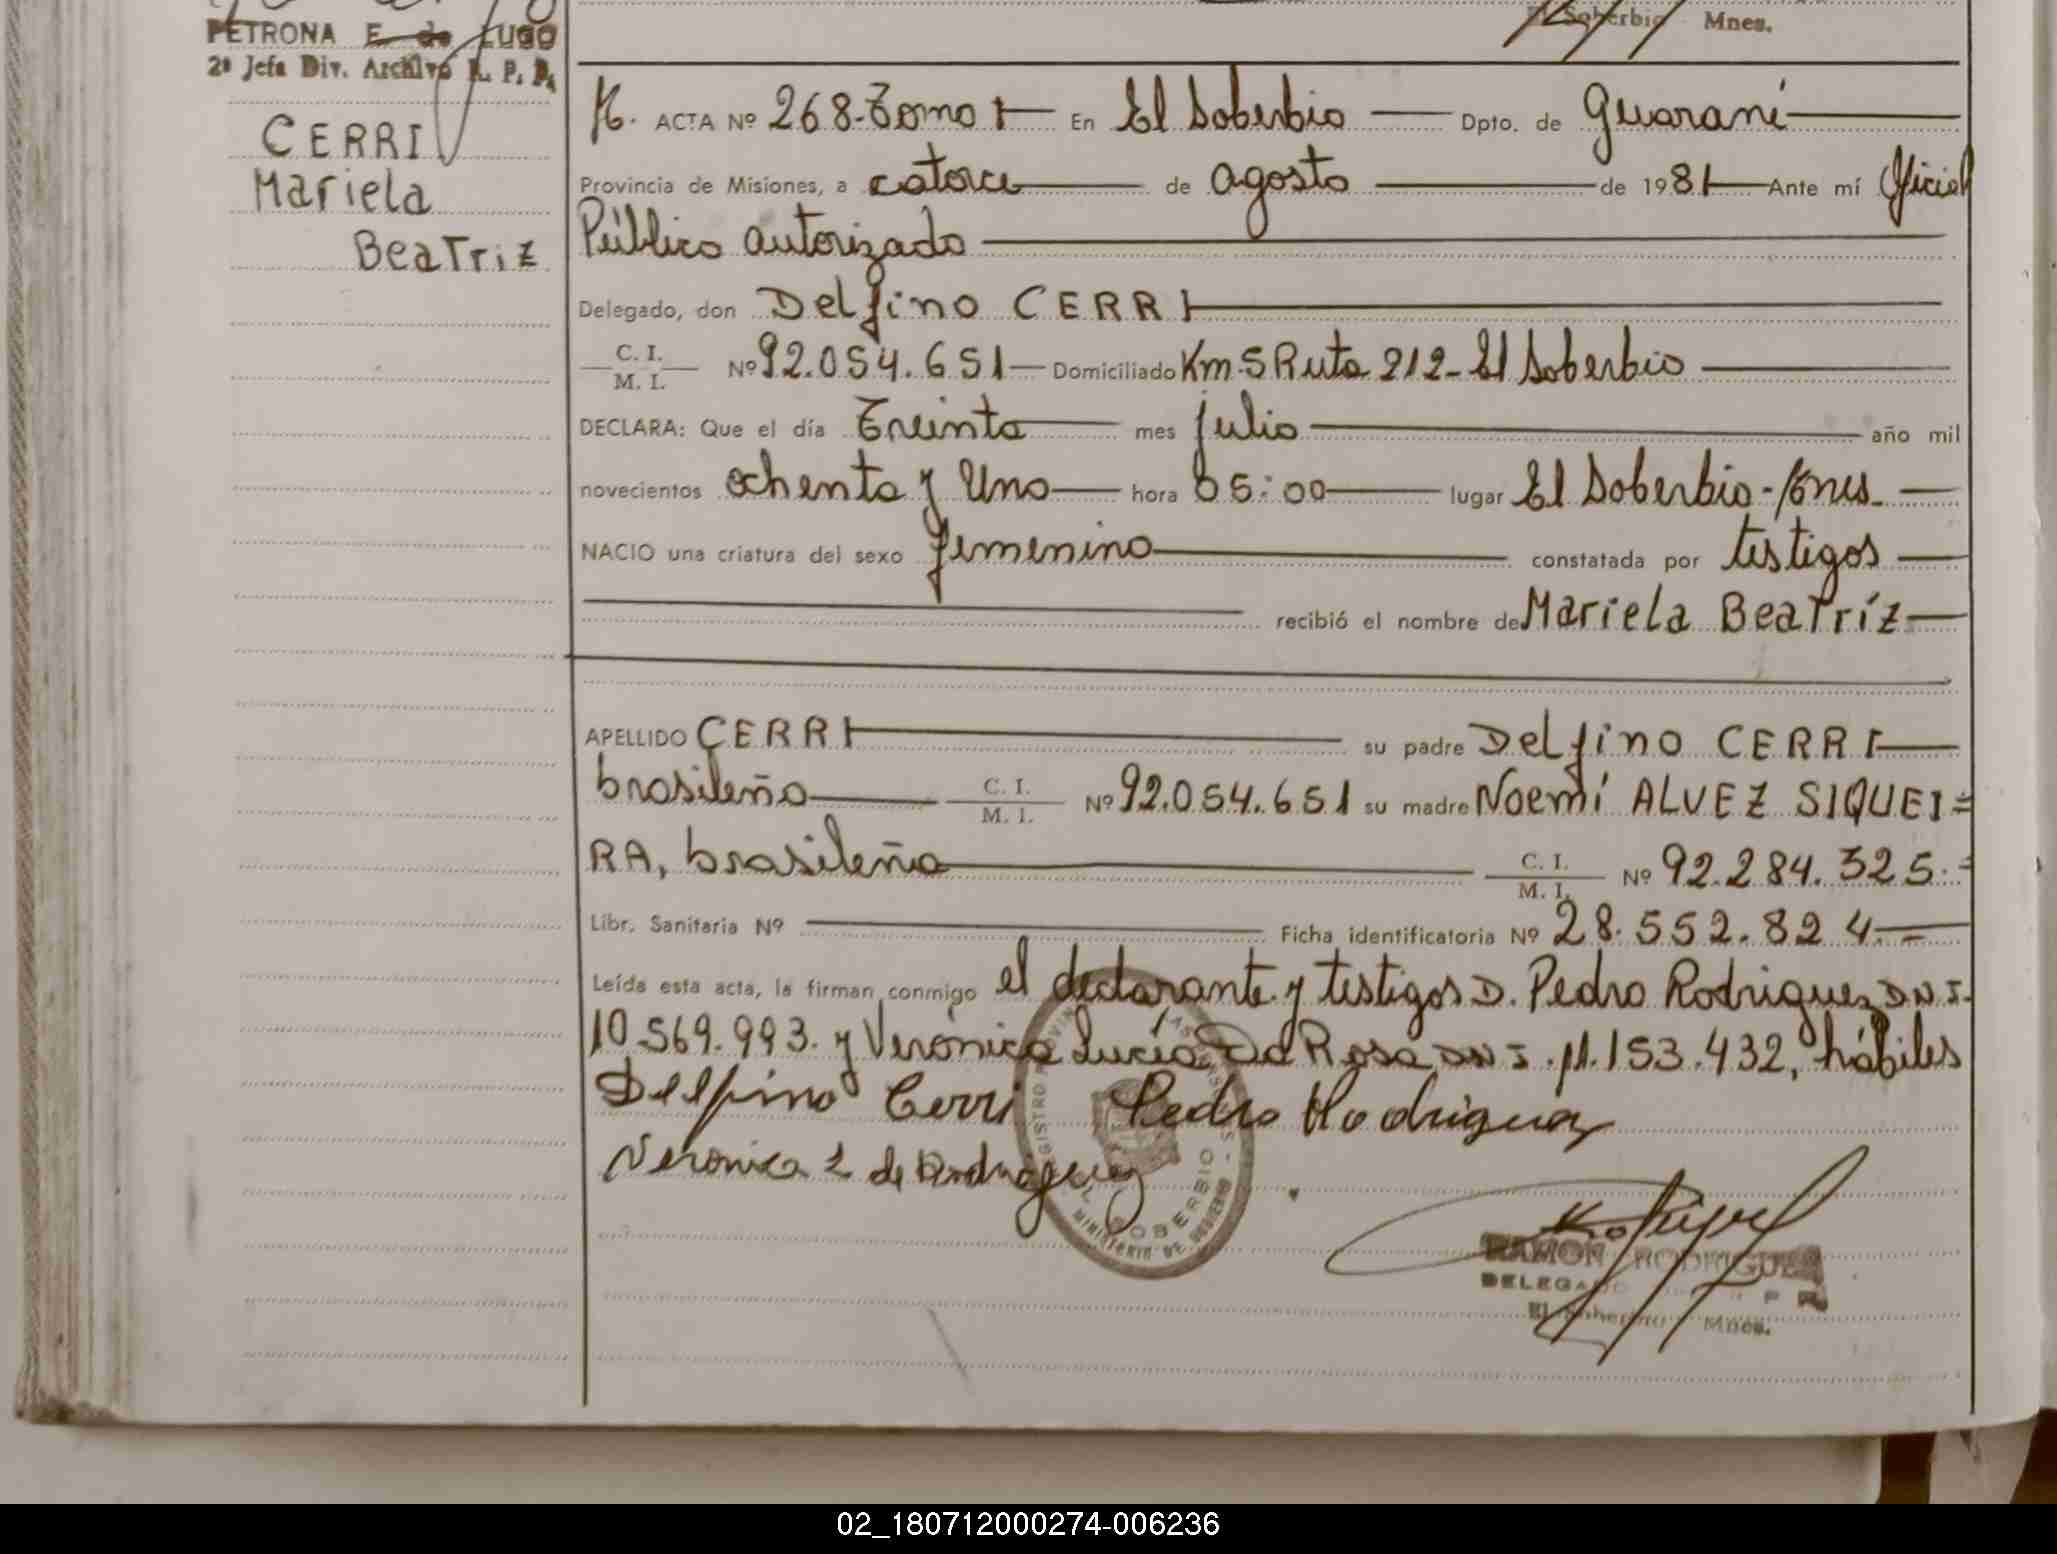 El Soberbio Mnes.
PETRONA E. de LUGO
2ª Jefa Div. Archivo R. P. P.
CERRI
Mariela
Beatriz
K. ACTA Nº 268-Tomo I En El Soberbio Dpto. de Guaraní
Provincia de Misiones, a catorce de agosto de 1981 Ante mí Oficial
Público autorizado
Delegado, don Delfino CERRI
C. I.
M. I. Nº 92.054.651 Domiciliado Km 5 Ruta 212-El Soberbio
DECLARA: Que el día Treinta mes julio año mil
novecientos ochenta y Uno hora 05:00 lugar El Soberbio-Mnes.
NACIO una criatura del sexo femenino constatada por testigos
recibió el nombre de Mariela Beatríz
APELLIDO CERRI su padre Delfino CERRI
brasileño C. I.
M. I. Nº 92.054.651 su madre Noemí ALVEZ SIQUEI=
RA, brasileña C. I.
M. I. Nº 92.284.325.=
Libr. Sanitaria Nº Ficha identificatoria Nº 28.552.824.-
Leída esta acta, la firman conmigo el declarante y testigos D. Pedro Rodriguez D.N.I.
10.569.993. y Verónica Lucía Da Rosa D.N.I. 11.153.432, hábiles
Delfino Cerri Pedro Rodriguez
Veronica L de Rodriguez
REGISTRO PROVIN
EL SOBERBIO
MINISTERIO DE GOBIERNO
RAMON RODRIGUEZ
DELEGADO R P P
El Soberbio Mnes.
02_180712000274-006236